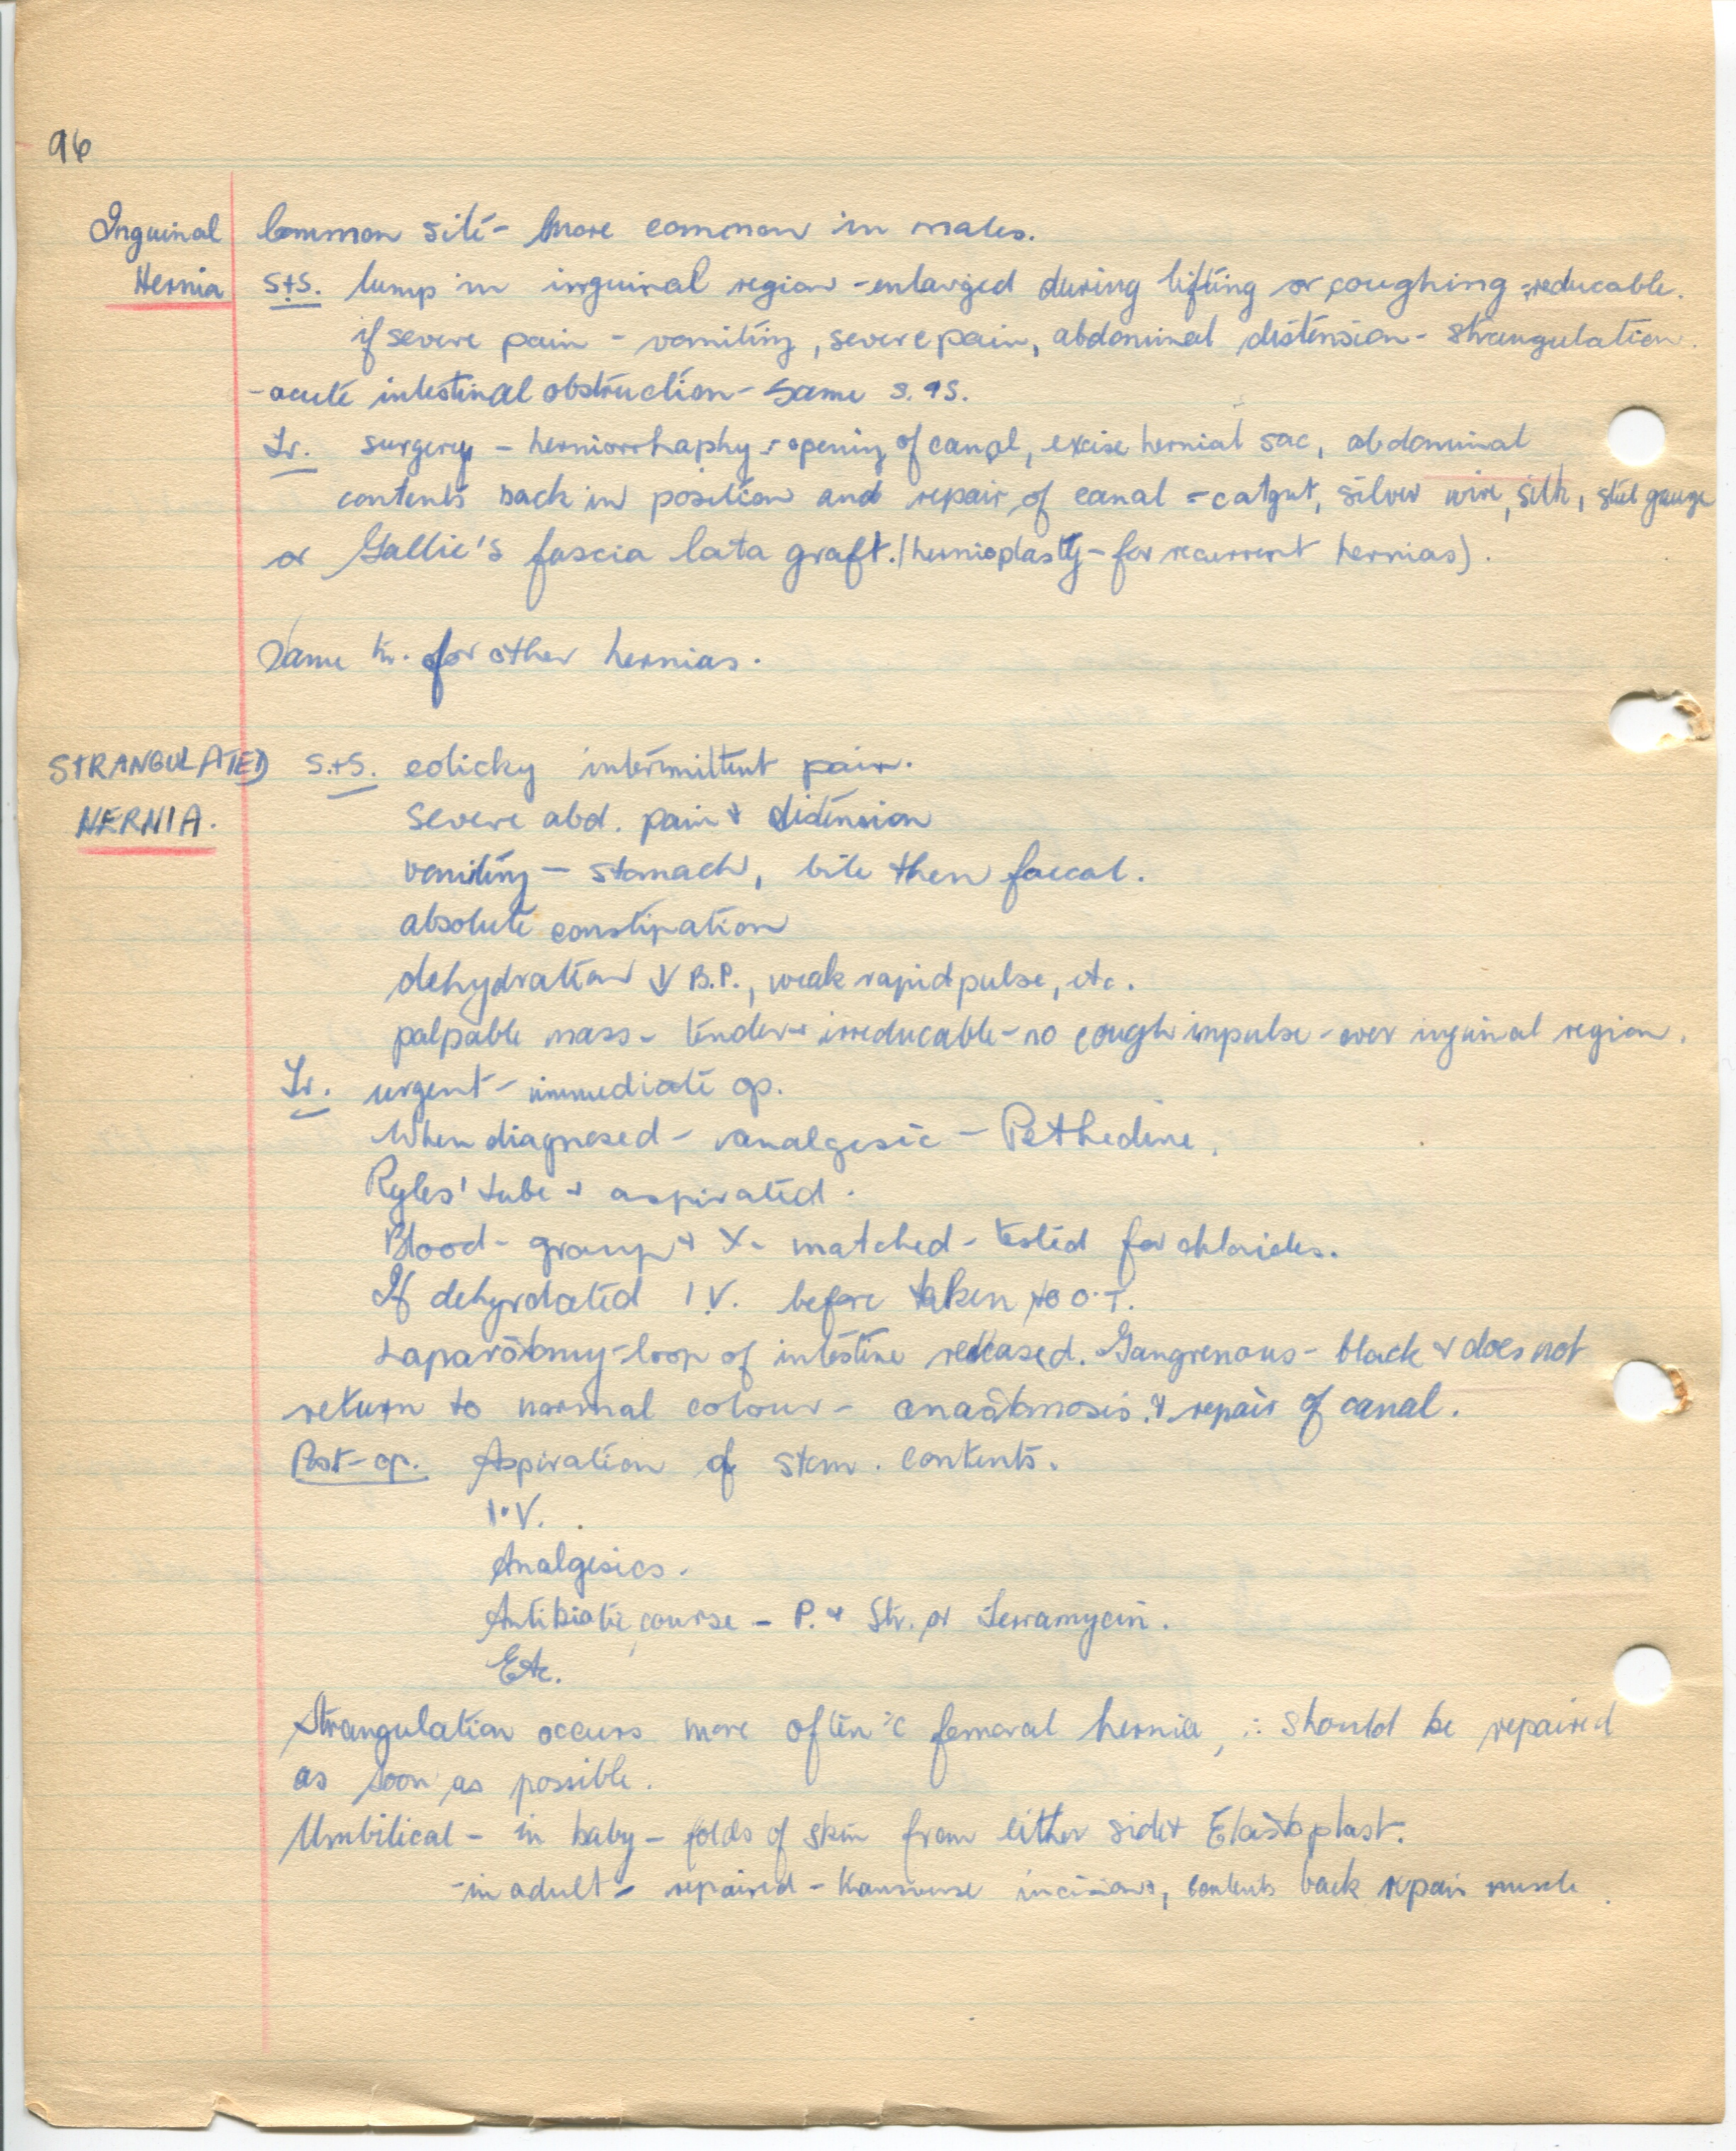 96
Inguinal Common site - more common in males.
Hernia S+S. lump in inguinal region - enlarged during lifting or coughing - reducable.
if severe pain - vomiting, severe pain, abdominal distension - strangulation.
- acute intestinal obstruction - same s. + s.
Tr. surgery - herniorrhaphy - opening of canal, excise hernial sac, abdominal
contents back in position and repair of canal - catgut, silver wire, silk, steel gauze
or Gallie's fascia lata graft. (hernioplasty - for recurrent hernias).
Same tr. for other hernias.
STRANGULATED S.+S. colicky intermittent pain.
HERNIA. severe abd. pain + distension
vomiting - stomach, bile then faecal.
absolute constipation
dehydration ↓ B.P., weak rapid pulse, etc.
palpable mass - tender + irreducable - no cough impulse - over inguinal region.
Tr. urgent - immediate op.
When diagnosed - analgesic - Pethedine.
Ryles' tube + aspirated.
Blood - group + X- matched - tested for chlorides.
If dehyrdated I.V. before taken to O.T.
Laparotomy - loop of intestine released. Gangrenous - black + does not
return to normal colour - anastomosis. + repair of canal.
Post-op. Aspiration of stom. contents.
I.V.
Analgesics.
Antibiotic course - P. + Str. or Terramycin.
Etc.
Strangulation occurs more often c̄ femoral hernia, ∴ should be repaired
as soon as possible.
Umbilical - in baby - folds of skin from either side + Elastoplast.
- in adult - repaired - transverse incisions, contents back repair muscle.